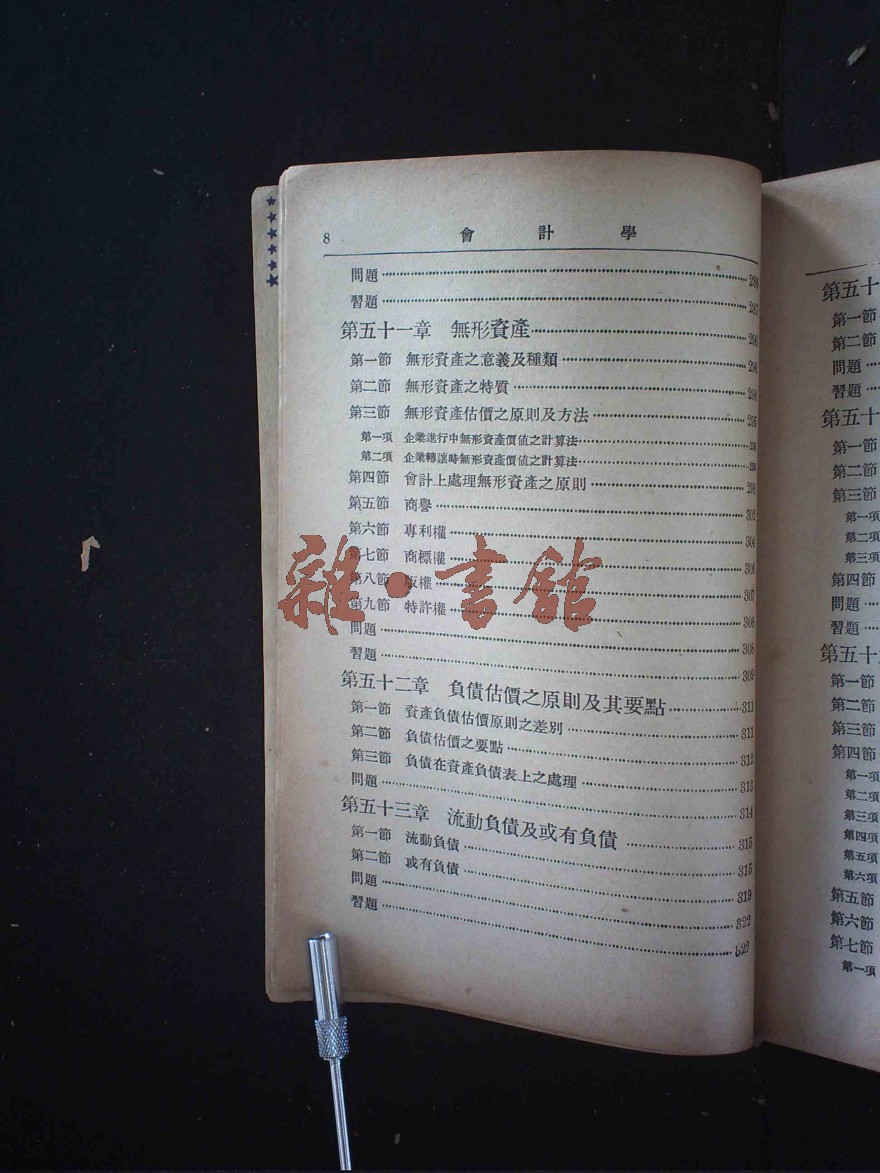 8 會 計 學
問題 286
習題 287
第五十一章 無形資產 290
第一節 無形資產之意義及種類
第二節 無形資產之特質
第三節 無形資產估價之原則及方法 295
第一項 企業進行中無形資產價值之計算法
第二項 企業轉讓時無形資產價值之計算法
第四節 會計上處理無形資產之原則
第五節 商譽 302
第六節 專利權 304
第七節 商標權 306
第八節 版權 307
第九節 特許權 308
問題 308
習題 309
第五十二章 負債估價之原則及其要點 311
第一節 資產負債估價原則之差別 311
第二節 負債估價之要點 312
第三節 負債在資產負債表上之處理 313
問題 314
第五十三章 流動負債及或有負債 315
第一節 流動負債 315
第二節 或有負債 319
問題 322
習題 322
雜·書館
第五十
第一節
第二節
問題
習題
第五十
第一節
第二節
第三節
第一項
第二項
第三項
第四節
問題
習題
第五十
第一節
第二節
第三節
第四節
第一項
第二項
第三項
第四項
第五項
第六項
第五節
第六節
第七節
第一項